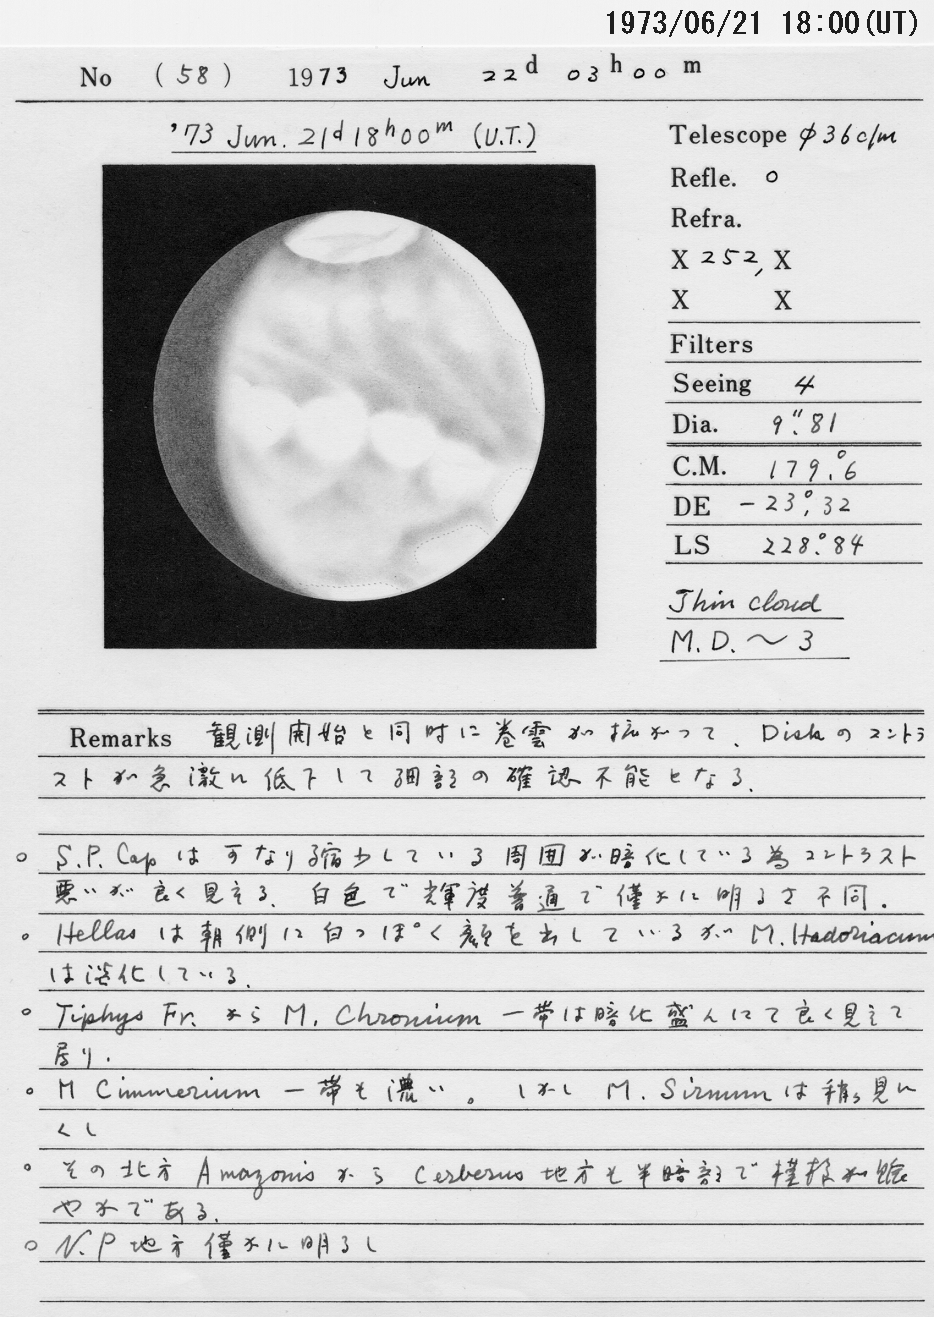 1973/06/21 18:00(UT)
No (58) 1973 Jun 22d 03h00m
'73 Jun. 21d18h00m (U.T.)
Telescope φ36c/m
Refle. o
Refra.
X 252, X
X X
Filters
Seeing 4
Dia. 9".81
C.M. 179°.6
DE -23°.32
LS 228°.84
Thin cloud
M.D.～3
Remarks 観測開始と同時に巻雲が拡がって、Diskのコントラ
ストが急激に低下して細部の確認不能となる。
○ S.P.Cap は可なり縮少している 周囲が暗化している為コントラスト
悪いが良く見える、白色で輝度普通で僅かに明るさ不同。
○ Hellas は朝側に白っぽく顔を出しているが M.Hadoriacum
は淡化している。
○ Tiphys Fr. から M. Chronium 一帯は暗化盛んにて良く見えて
居り.
○ M Cimmerium 一帯も濃い。しかし M. Sirnum は稍々見に
くし
○ その北方 Amazonis から Cerberus 地方も半暗部で模様が
やかである。
○ N.P 地方僅かに明るし